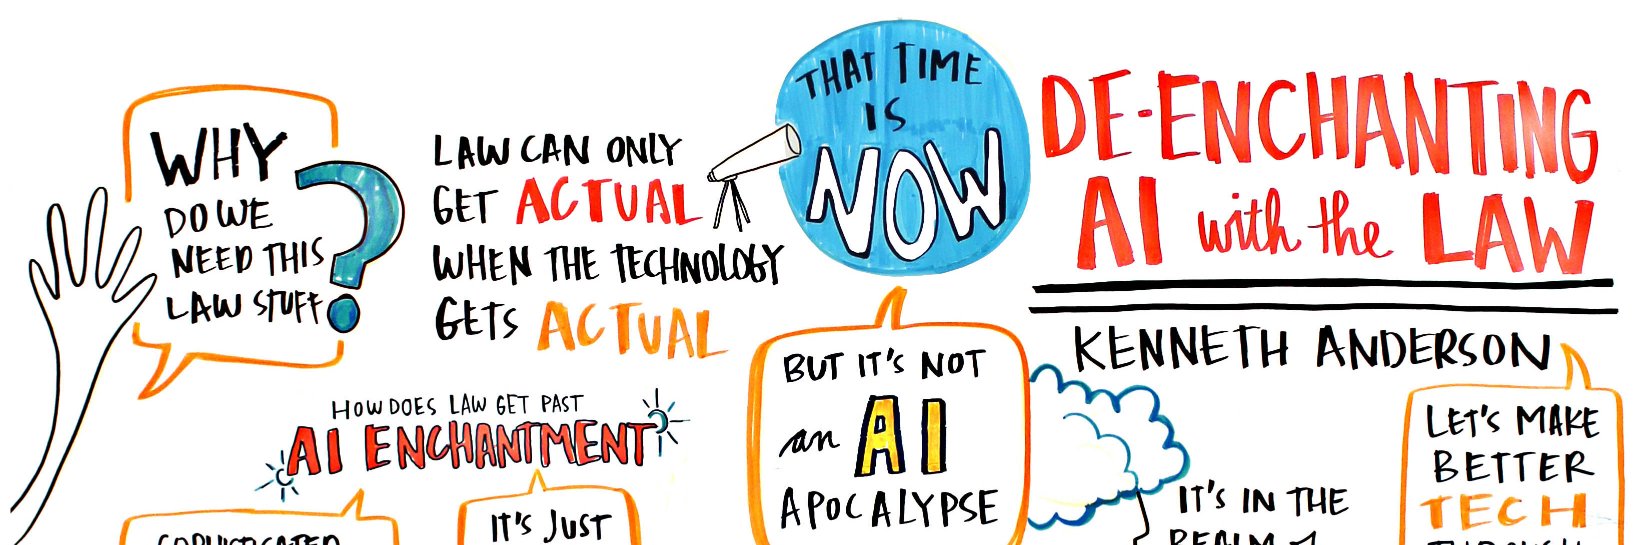 WHY
DO WE
NEED THIS
LAW STUFF?
LAW CAN ONLY
GET ACTUAL
WHEN THE TECHNOLOGY
GETS ACTUAL
THAT TIME
IS
NOW
DE-ENCHANTING
AI with the LAW
KENNETH ANDERSON
HOW DOES LAW GET PAST
AI ENCHANTMENT
SOPHISTICATED
IT'S JUST
BUT IT'S NOT
an AI
APOCALYPSE
IT'S IN THE
REALM of
LET'S MAKE
BETTER
TECH
THROUGH